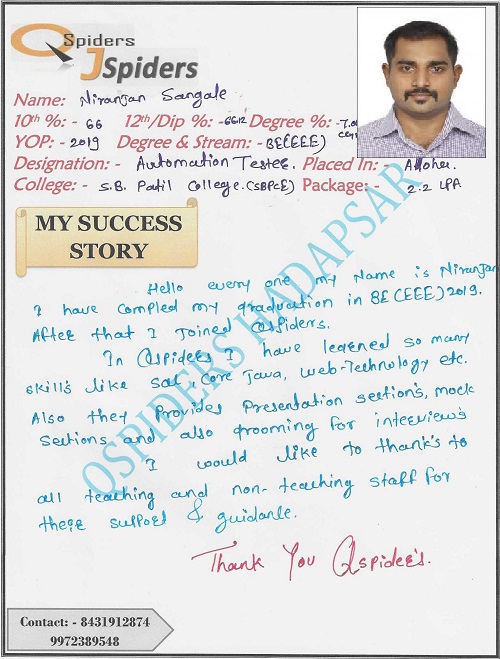 QSpiders
JSpiders
Name: Niranjan Sangale
10th %: - 66 12th/Dip %: - 66.12 Degree %: - 7.0
YOP: - 2019 Degree & Stream: - BE(EEE)
Designation: - Automation Tester. Placed In: -
College: - S.B. Patil College.(SBPCE) Package: - 2.2 LPA
MY SUCCESS
STORY
Hello every one my Name is Niranjan
I have compled my graduation in BE(EEE)2019.
After that I Joined Qspiders.
In Qspiders I have learned so many
skill's like SQL, Core Java, Web-Technology etc.
Also they Provides Presentation section's, mock
sections and also grooming for interview's
I would like to thank's to
all teaching and non-teaching staff for
there support & guidance.
Thank You Qspider's.
QSPIDERS HADAPSAR
Contact: - 8431912874
9972389548